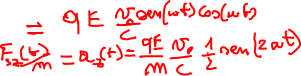 = qE v₀/c sen(ωt) cos(ωt)
F_sz(t)/m = a_z(t) = qE/m v₀/c 1/2 sen(2ωt)